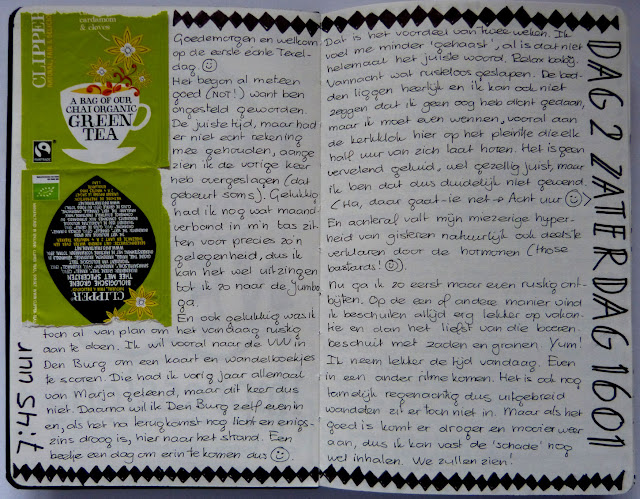 cardamom
& cloves
CLIPPER
NATURAL, FAIR & DELICIOUS
A BAG OF OUR
CHAI ORGANIC
GREEN
TEA
FAIRTRADE
CLIPPER
NATURAL, FAIR & DELICIOUS
BIOLOGISCHE GROENE
THEE MET SPECERIJEN
7:45 uur
Goedemorgen en welkom
op de eerste echte Texel-
dag ☺
Het begon al meteen
goed (NOT!) want ben
ongesteld geworden.
De juiste tijd, maar had
er niet echt rekening
mee gehouden, aange-
zien ik de vorige keer
heb overgeslagen (dat
gebeurt soms). Gelukkig
had ik nog wat maand-
verband in m'n tas zit-
ten voor precies zo'n
gelegenheid, dus ik
kan het wel uitzingen
tot ik zo naar de Jumbo
ga.
En ook gelukkig was ik
toch al van plan om het vandaag rustig
aan te doen. Ik wil vooral naar de VVV in
Den Burg om een kaart en wandelboekjes
te scoren. Die had ik vorig jaar allemaal
van Marja geleend, maar dit keer dus
niet. Daarna wil ik Den Burg zelf even in
en, als het na terugkomst nog licht en enigs-
zins droog is, hier naar het strand. Een
beetje een dag om erin te komen dus ☺.
Dat is het voordeel van twee weken. Ik
voel me minder 'gehaast', al is dat niet
helemaal het juiste woord. Relax baby.
Vannacht wat rusteloos geslapen. De bed-
den liggen heerlijk en ik kan ook niet
zeggen dat ik geen oog heb dicht gedaan,
maar ik moet even wennen, vooral aan
de kerkklok hier op het pleintje die elk
half uur van zich laat horen. Het is geen
vervelend geluid, wel gezellig juist, maar
ik ben dat dus duidelijk niet gewend.
(Ha, daar gaat-ie net → Acht uur ☺)
En achteraf valt mijn miezerige hyper-
heid van gisteren natuurlijk ook deels te
verklaren door de hormonen (those
bastards! ☺).
Nu ga ik zo eerst maar even rustig ont-
bijten. Op de een of andere manier vind
ik beschuiten altijd erg lekker op vakan-
tie en dan het liefst van die boeren-
beschuit met zaden en granen. Yum!
Ik neem lekker de tijd vandaag. Even
in een ander ritme komen. Het is ook nog
tamelijk regenachtig dus uitgebreid
wandelen zit er toch niet in. Maar als het
goed is komt er droger en mooier weer
aan, dus ik kan vast de 'schade' nog
wel inhalen. We zullen zien!
DAG 2 ZATERDAG 1601